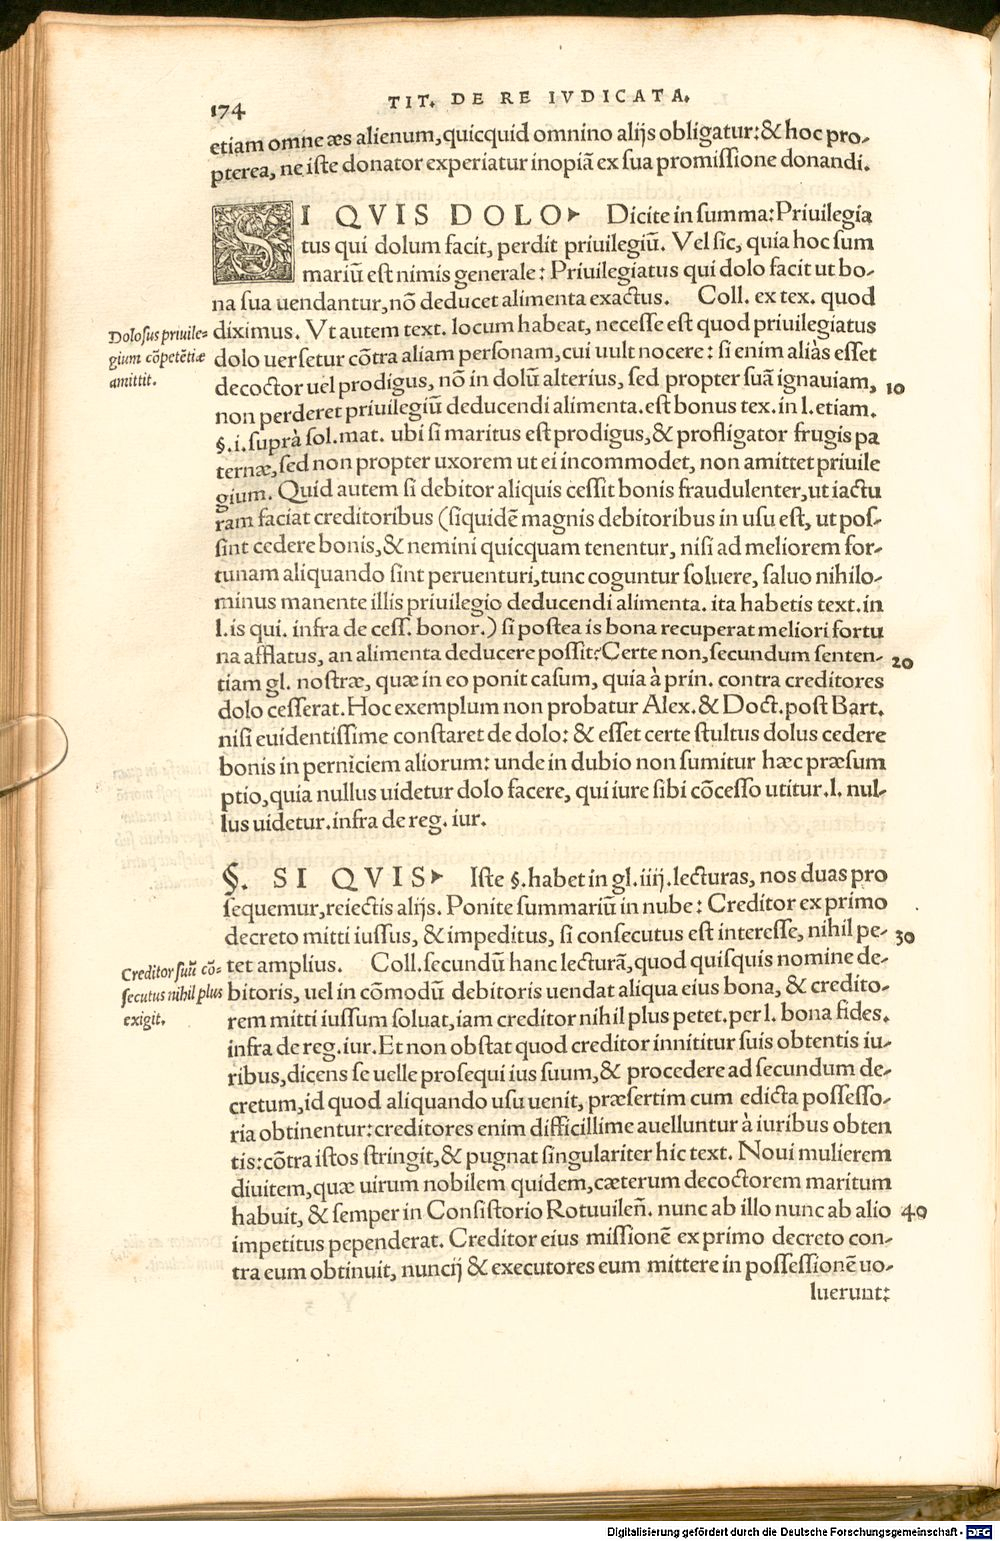 174
TIT. DE RE IVDICATA.
etiam omne æs alienum, quicquid omnino alijs obligatur: & hoc pro-
pterea, ne iste donator experiatur inopiã ex sua promissione donandi.
SI QVIS DOLO▸ Dicite in summa: Priuilegia
tus qui dolum facit, perdit priuilegiũ. Vel sic, quia hoc sum
mariũ est nimis generale: Priuilegiatus qui dolo facit ut bo-
na sua uendantur, nõ deducet alimenta exactus. Coll. ex tex. quod
Dolosus priuile=
gium cõpetẽtiæ
amittit.
diximus. Vt autem text. locum habeat, necesse est quod priuilegiatus
dolo uersetur cõtra aliam personam, cui uult nocere: si enim aliàs esset
decoctor uel prodigus, nõ in dolũ alterius, sed propter suã ignauiam, 10
non perderet priuilegiũ deducendi alimenta. est bonus tex. in l. etiam.
§. i. suprà sol. mat. ubi si maritus est prodigus, & profligator frugis pa
ternæ, sed non propter uxorem ut ei incommodet, non amittet priuile
gium. Quid autem si debitor aliquis cessit bonis fraudulenter, ut iactu
ram faciat creditoribus (siquidẽ magnis debitoribus in usu est, ut pos-
sint cedere bonis, & nemini quicquam tenentur, nisi ad meliorem for-
tunam aliquando sint peruenturi, tunc coguntur soluere, saluo nihilo-
minus manente illis priuilegio deducendi alimenta. ita habetis text. in
l. is qui. infra de cess. bonor.) si postea is bona recuperat meliori fortu
na afflatus, an alimenta deducere possit? Certe non, secundum senten- 20
tiam gl. nostræ, quæ in eo ponit casum, quia à prin. contra creditores
dolo cesserat. Hoc exemplum non probatur Alex. & Doct. post Bart.
nisi euidentissime constaret de dolo: & esset certe stultus dolus cedere
bonis in perniciem aliorum: unde in dubio non sumitur hæc præsum
ptio, quia nullus uidetur dolo facere, qui iure sibi cõcesso utitur. l. nul-
lus uidetur. infra de reg. iur.
§. SI QVIS▸ Iste §. habet in gl. iiij. lecturas, nos duas pro
sequemur, reiectis alijs. Ponite summariũ in nube: Creditor ex primo
decreto mitti iussus, & impeditus, si consecutus est interesse, nihil pe- 30
Creditor suũ cõ=
secutus nihil plus
exigit.
tet amplius. Coll. secundũ hanc lecturã, quod quisquis nomine de-
bitoris, uel in cõmodũ debitoris uendat aliqua eius bona, & credito-
rem mitti iussum soluat, iam creditor nihil plus petet. per l. bona fides.
infra de reg. iur. Et non obstat quod creditor innititur suis obtentis iu-
ribus, dicens se uelle prosequi ius suum, & procedere ad secundum de-
cretum, id quod aliquando usu uenit, præsertim cum edicta possesso-
ria obtinentur: creditores enim difficillime auelluntur à iuribus obten
tis: cõtra istos stringit, & pugnat singulariter hic text. Noui mulierem
diuitem, quæ uirum nobilem quidem, cæterum decoctorem maritum
habuit, & semper in Consistorio Rotuuileñ. nunc ab illo nunc ab alio 40
impetitus pependerat. Creditor eius missionẽ ex primo decreto con-
tra eum obtinuit, nuncij & executores eum mittere in possessionẽ uo-
luerunt:
Digitalisierung gefördert durch die Deutsche Forschungsgemeinschaft - DFG